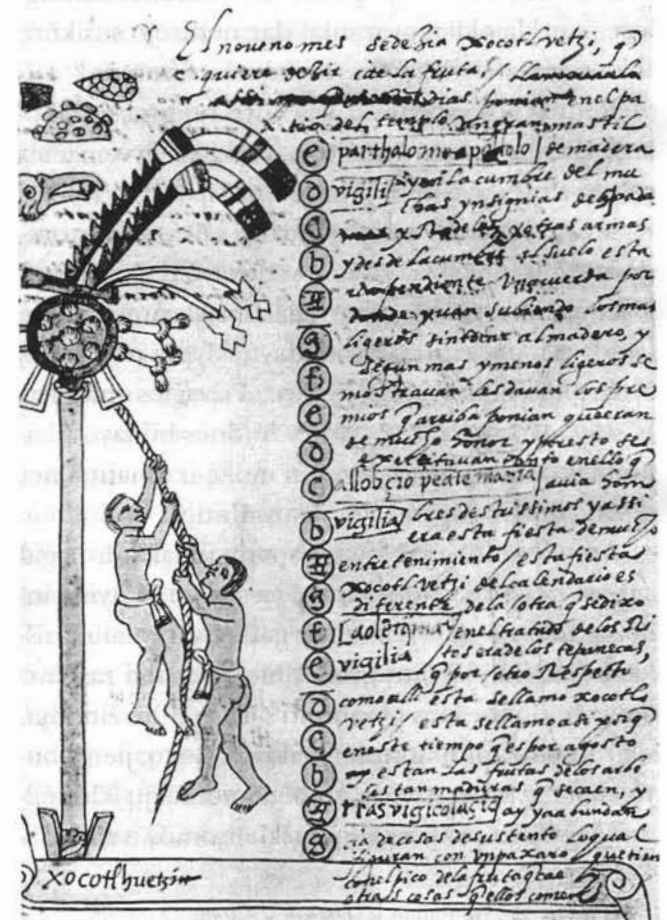 El noveno mes se dezia xocotl vetzi, q̃
quiere dezir cae la fruta, llamavanla
dias ponian en el pa
tio del templo un gran mastil
e partholome apostolo de madera
d vigilia y en la cumbre del mu
chas ynsignias
c y otras armas
b y desde la cumbre al suelo esta
A pendiente una cuerda por
donde yvan subiendo
g ligeros sin tocar al madero, y
f segun mas y menos ligeros se
mostravan les davan los pre
e mios arriba ponian que eran
d de mucho honor y puesto se
exercitavan tanto en ello q̃
c avia hom
b vigilia bres destrissimos y assi
era esta fiesta de mucho
A entretenimiento esta fiesta
g xocotl vetzi del calendario es
diferente de la otra q̃ se dixo
f en el tratado de los Ri
e vigilia tos era de los tepanecas
q̃ por
d como alli esta se llamo xocotl
c vetzi, esta se llamo assi porq̃
en este tiempo q̃ es por agosto
b estan las frutas de los arbo
les tan maduras q̃ se caen, y
A ay ya abundan
g cia de cosas de sustento lo qual
figuran con un paxaro que tien
xocotlhuetzin en el pico de la fruta q̃ cae
otras cosas q̃ ellos comen